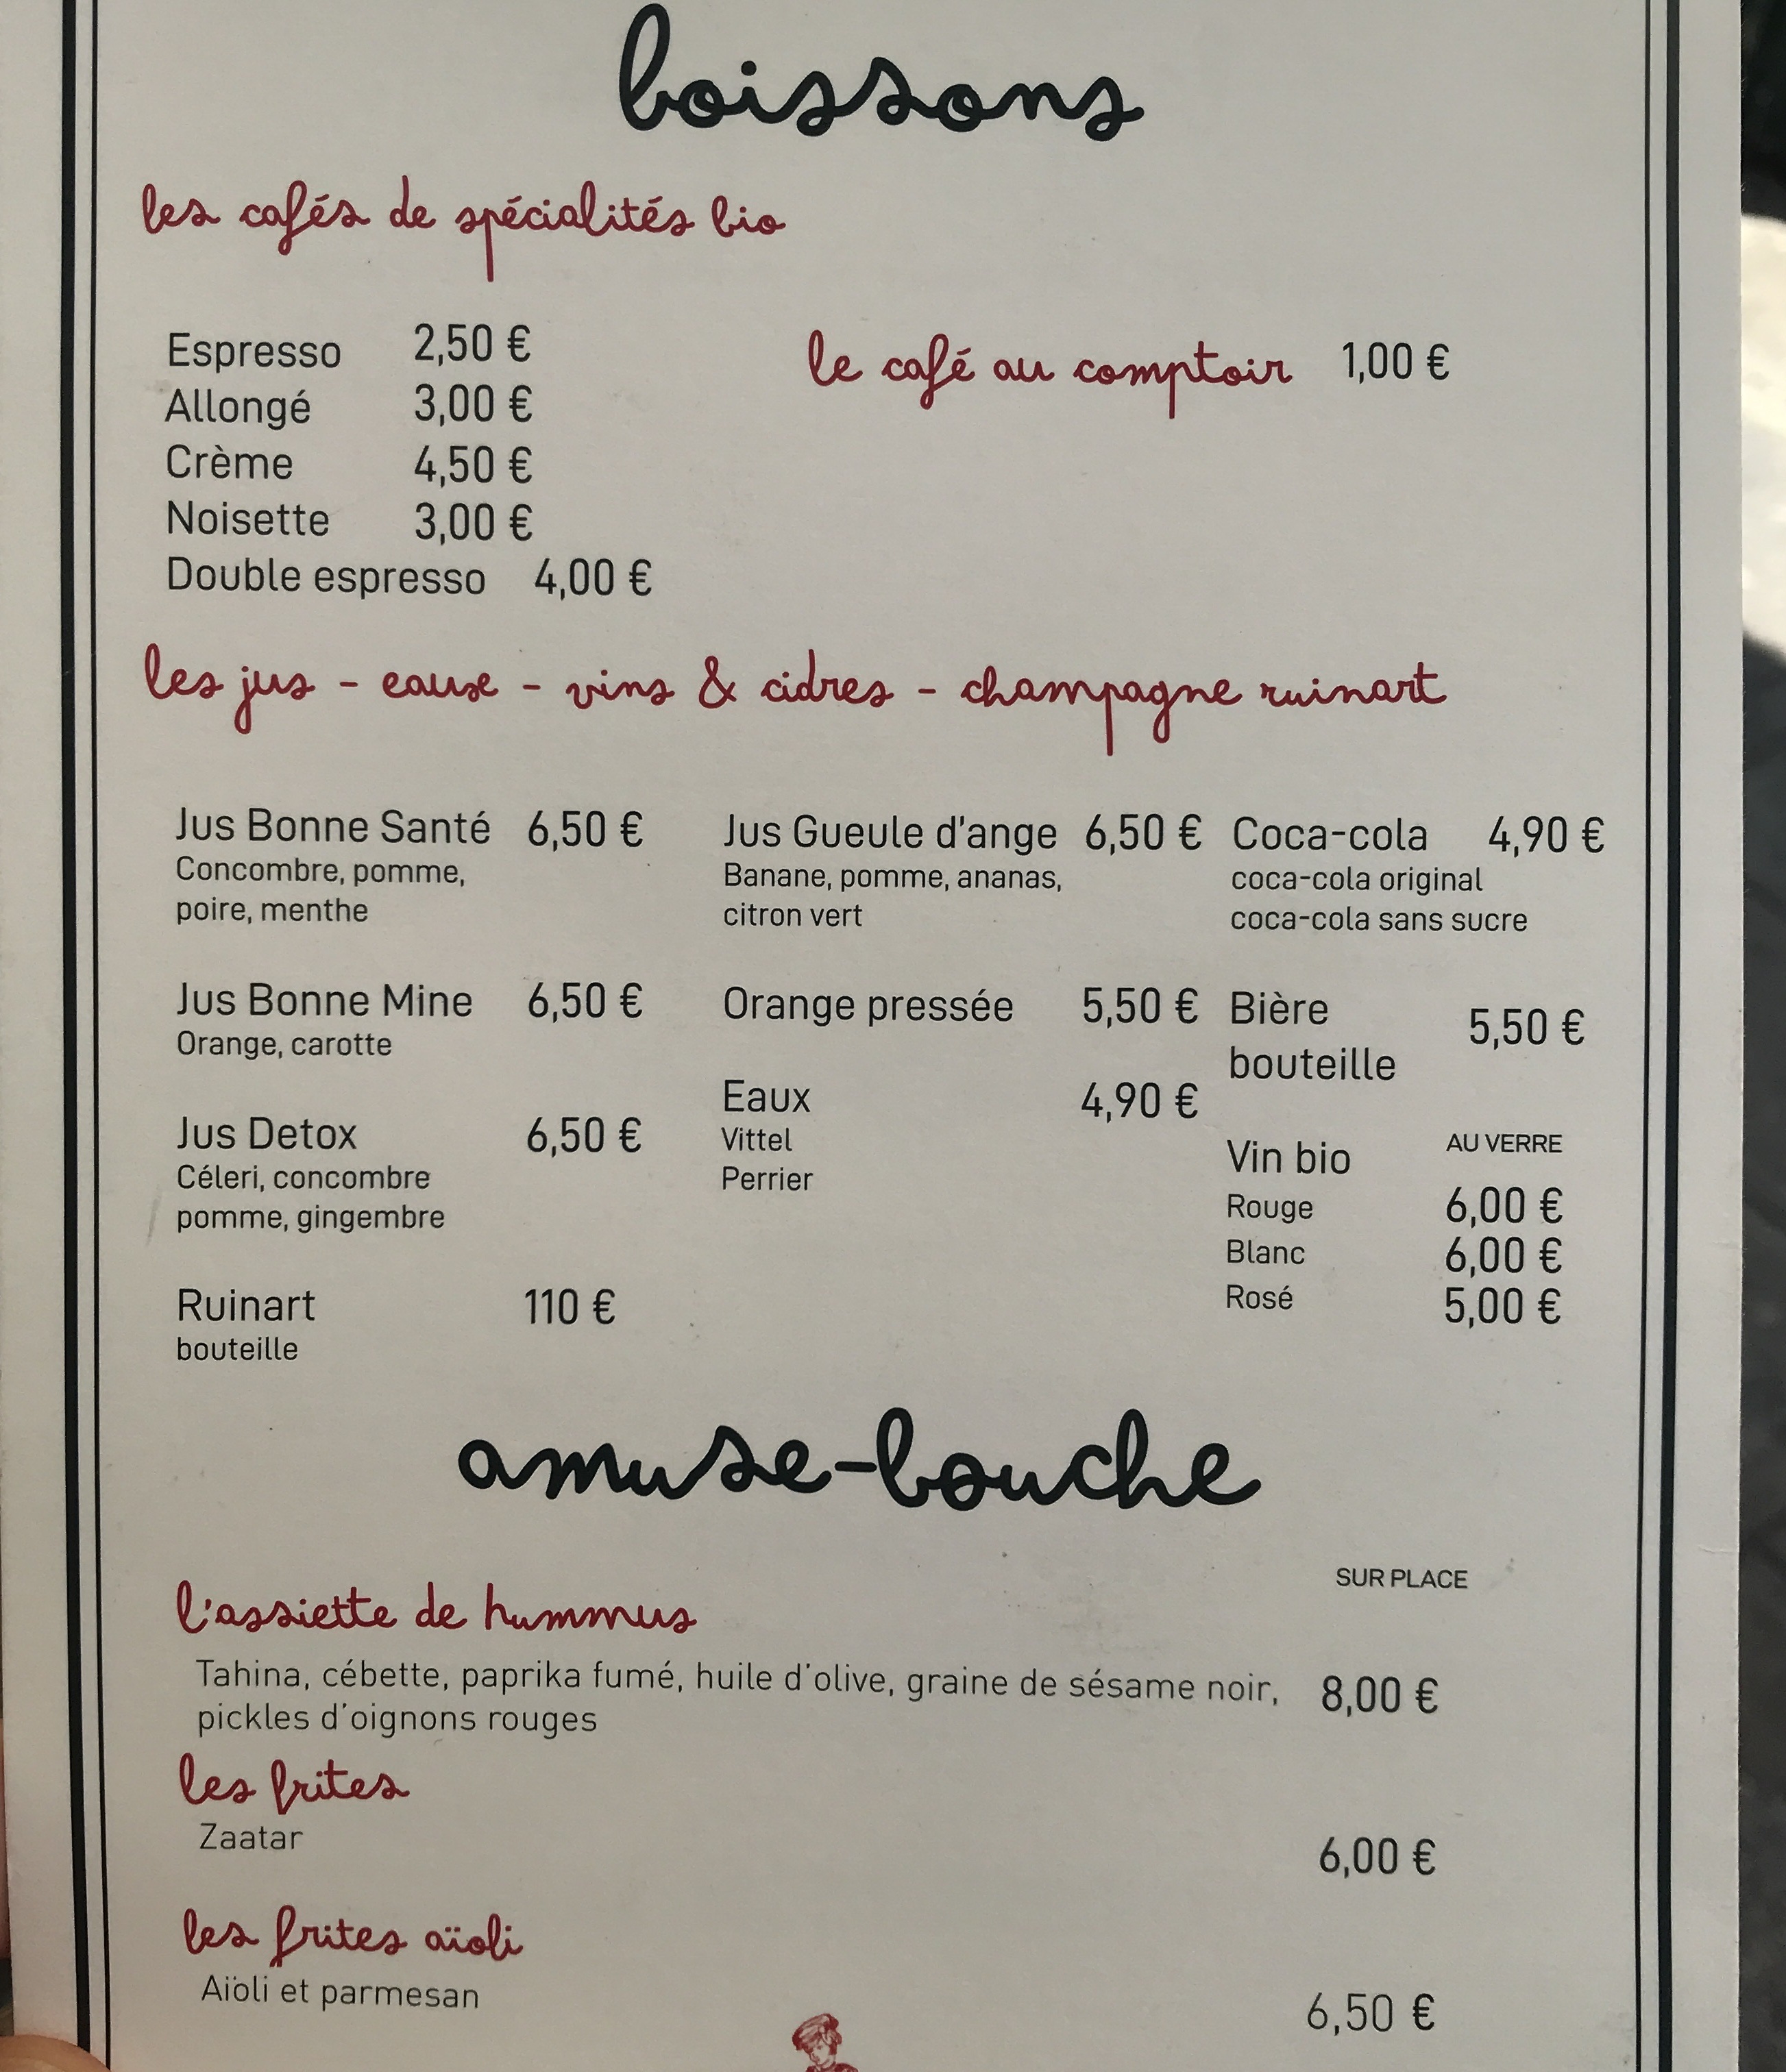 boissons
les cafés de spécialités bio
Espresso 2,50 €
Allongé 3,00 €
Crème 4,50 €
Noisette 3,00 €
Double espresso 4,00 €
le café au comptoir 1,00 €
les jus - eause - vins & cidres - champagne ruinart
Jus Bonne Santé 6,50 €
Concombre, pomme,
poire, menthe
Jus Bonne Mine 6,50 €
Orange, carotte
Jus Detox 6,50 €
Céleri, concombre
pomme, gingembre
Ruinart 110 €
bouteille
Jus Gueule d'ange 6,50 €
Banane, pomme, ananas,
citron vert
Orange pressée 5,50 €
Eaux 4,90 €
Vittel
Perrier
Coca-cola 4,90 €
coca-cola original
coca-cola sans sucre
Bière
bouteille 5,50 €
Vin bio AU VERRE
Rouge 6,00 €
Blanc 6,00 €
Rosé 5,00 €
amuse-bouche
SUR PLACE
l'assiette de hummus
Tahina, cébette, paprika fumé, huile d'olive, graine de sésame noir, 8,00 €
pickles d'oignons rouges
les frites
Zaatar 6,00 €
les frites aïoli
Aïoli et parmesan 6,50 €